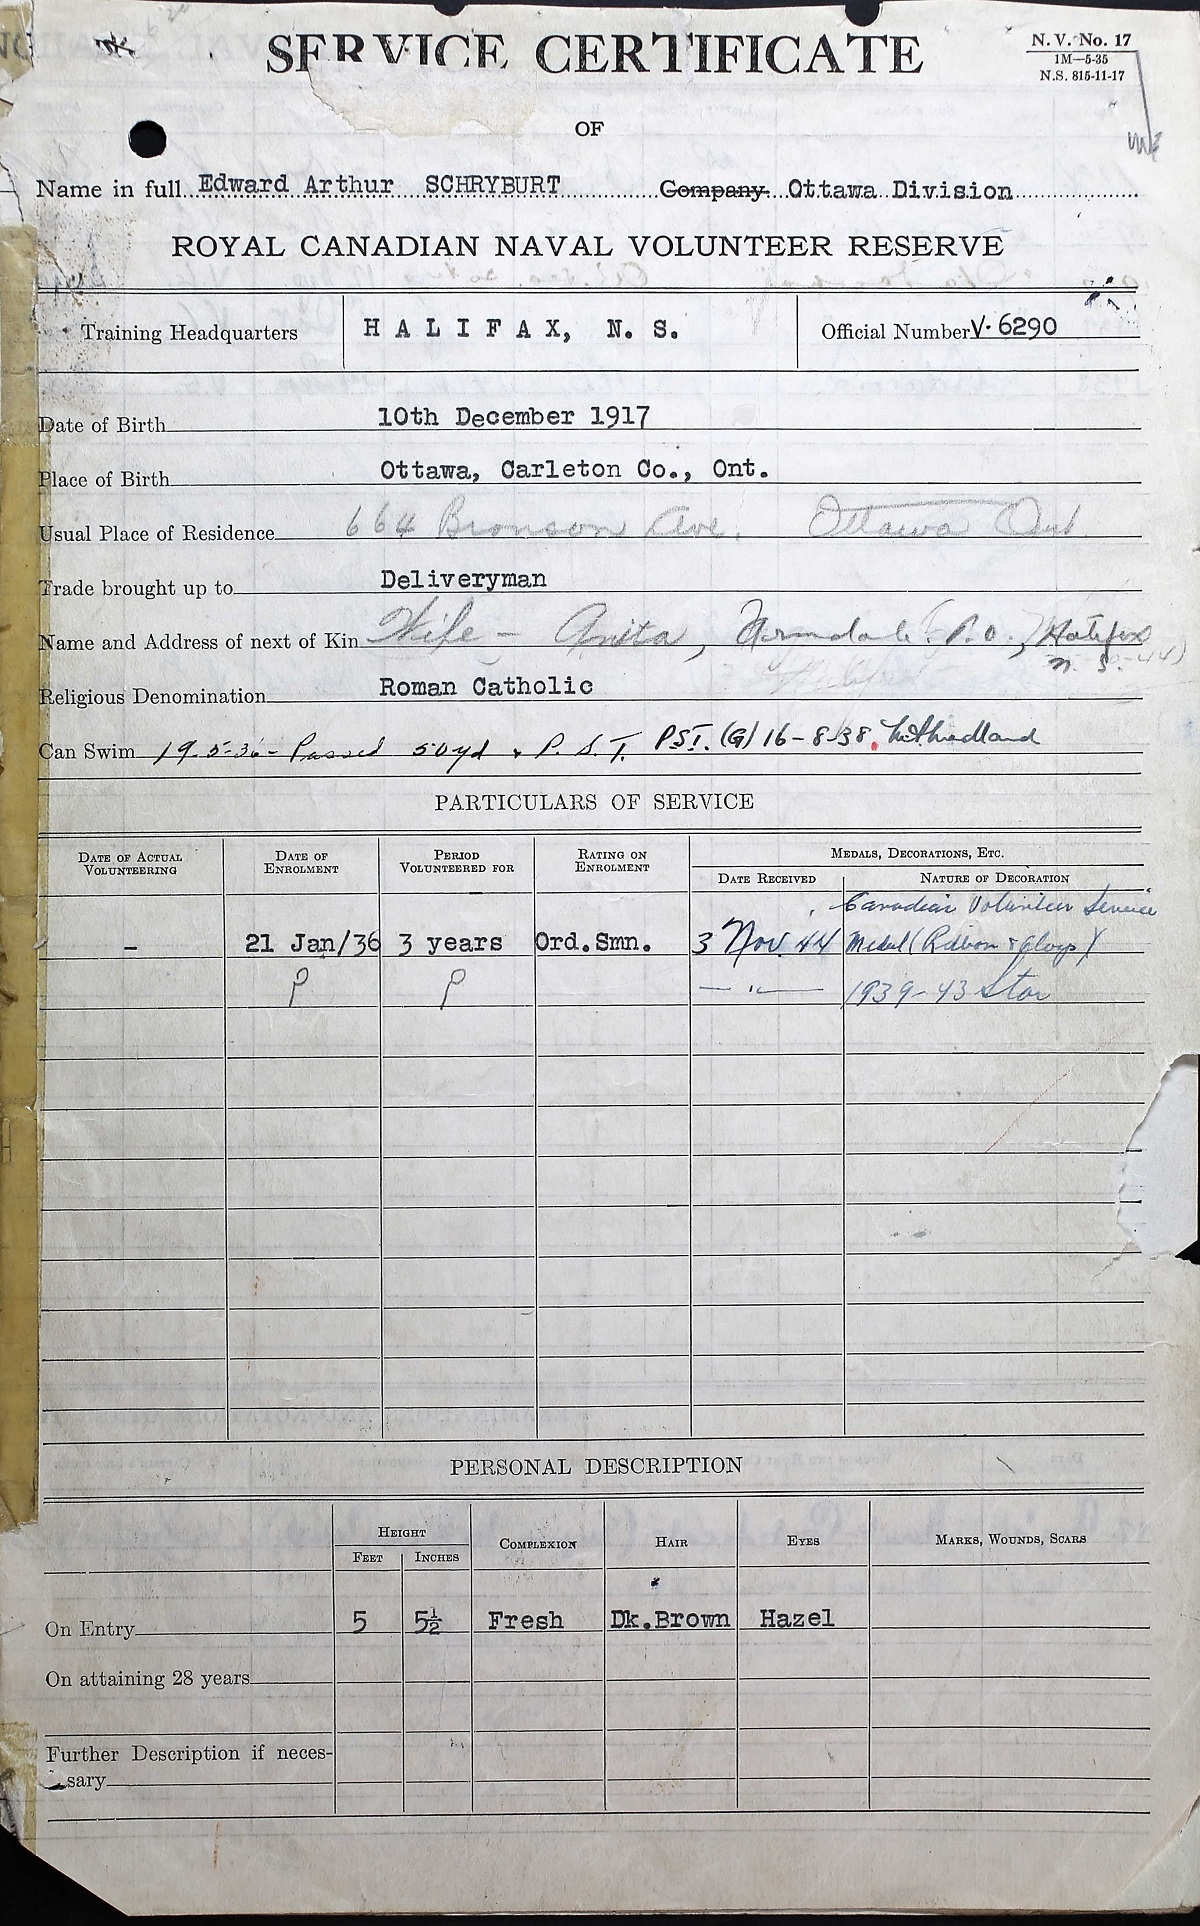 SERVICE CERTIFICATE
N. V. No. 17
1M—5-35
N.S. 815-11-17
OF
Name in full Edward Arthur SCHRYBURT Company. Ottawa Division
ROYAL CANADIAN NAVAL VOLUNTEER RESERVE
Training Headquarters HALIFAX, N. S. Official Number V. 6290
Date of Birth 10th December 1917
Place of Birth Ottawa, Carleton Co., Ont.
Usual Place of Residence 664 Bronson Ave. Ottawa Ont.
Trade brought up to Deliveryman
Name and Address of next of Kin Wife - Anita, P.O., Halifax
N. S.
Religious Denomination Roman Catholic
Can Swim 19-5-36 - Passed 50yd & P.S.T. P.S.T. (G) 16-8-38.
PARTICULARS OF SERVICE
DATE OF ACTUAL VOLUNTEERING DATE OF ENROLMENT PERIOD VOLUNTEERED FOR RATING ON ENROLMENT MEDALS, DECORATIONS, ETC.
DATE RECEIVED NATURE OF DECORATION
Canadian Volunteer Service
- 21 Jan/36 3 years Ord.Smn. 3 Nov. 44 Medal (Ribbon & Clasp)
P P — " — 1939-43 Star
PERSONAL DESCRIPTION
HEIGHT COMPLEXION HAIR EYES MARKS, WOUNDS, SCARS
FEET INCHES
On Entry 5 5½ Fresh Dk.Brown Hazel
On attaining 28 years
Further Description if neces-
sary